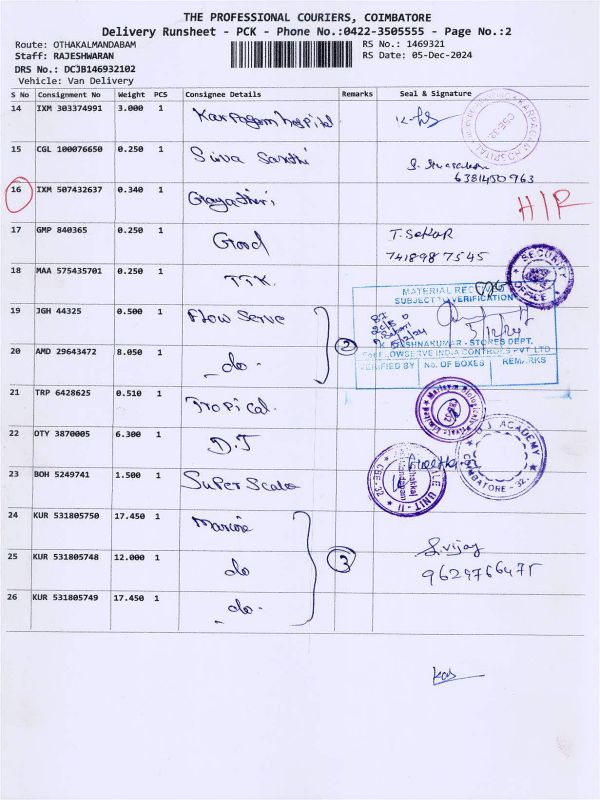 THE PROFESSIONAL COURIERS, COIMBATORE
Delivery Runsheet - PCK - Phone No.:0422-3505555 - Page No.:2
Route: OTHAKALMANDABAM
RS No.: 1469321
Staff: RAJESHWARAN
RS Date: 05-Dec-2024
DRS No.: DCJB146932102
Vehicle: Van Delivery
S No Consignment No Weight PCS Consignee Details Remarks Seal & Signature
14 IXM 303374991 3.000 1 Karpagam hospital
15 CGL 100076650 0.250 1 Siva Sandhi
6381450963
16 IXM 507432637 0.340 1 Gayathiri H/R
17 GMP 840365 0.250 1 Good T. Sekar
7418987545
18 MAA 575435701 0.250 1 TTK.
SECURITY OFFICE
19 JGH 44325 0.500 1 Flow Serve
MATERIAL RECEIVED
SUBJECT TO VERIFICATION
5/12/24
KRISHNAKUMAR - STORES DEPT.
FLOWSERVE INDIA CONTROLS PVT LTD
VERIFIED BY No. OF BOXES REMARKS
20 AMD 29643472 8.050 1 do. 2
21 TRP 6428625 0.510 1 Tropical.
22 OTY 3870005 6.300 1 D.J
ACADEMY
COIMBATORE - 32.
23 BOH 5249741 1.500 1 Super Scale
UNIT - II
CBE-32
24 KUR 531805750 17.450 1
25 KUR 531805748 12.000 1 do 3 S. vijay
9629766475
26 KUR 531805749 17.450 1 do.